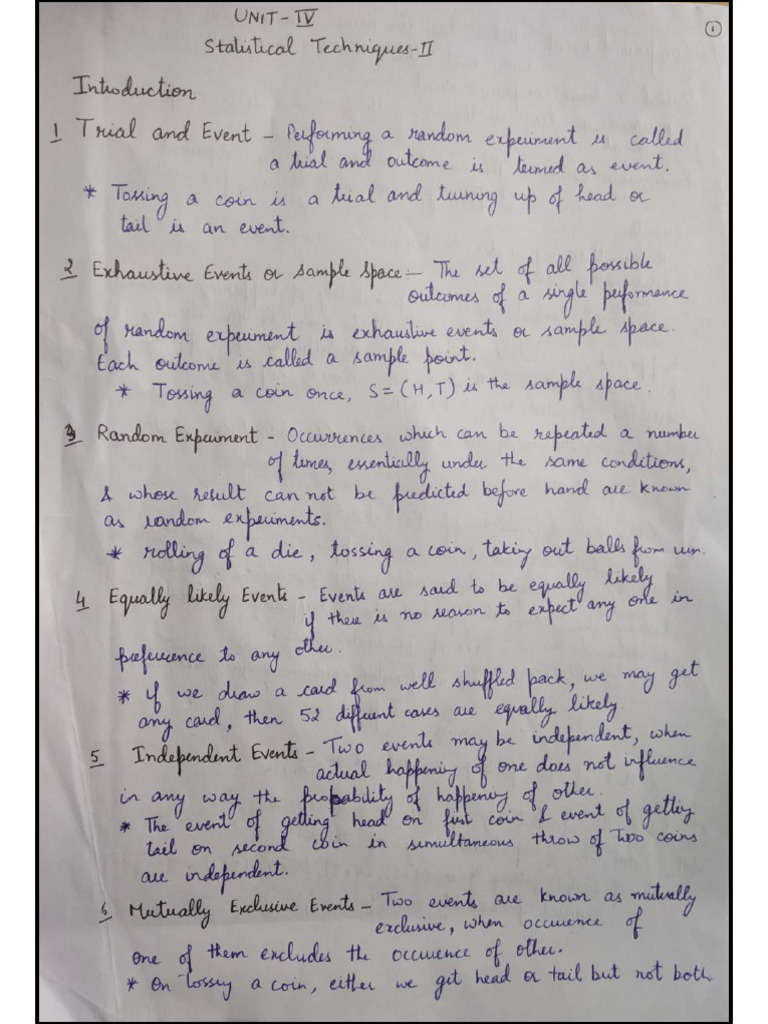 UNIT-IV
1
Statistical Techniques-II
Introduction
1 Trial and Event – Performing a random experiment is called
a trial and outcome is termed as event.
* Tossing a coin is a trial and turning up of head or
tail is an event.
2 Exhaustive Events or Sample Space – The set of all possible
outcomes of a single performance
of random experiment is exhaustive events or sample space.
Each outcome is called a sample point.
* Tossing a coin once, S = (H, T) is the sample space.
3 Random Experiment – Occurrences which can be repeated a number
of times, essentially under the same conditions,
& whose result can not be predicted before hand are known
as random experiments.
* rolling of a die, tossing a coin, taking out balls from urn.
4 Equally likely Events – Events are said to be equally likely
if there is no reason to expect any one in
preference to any other.
* if we draw a card from well shuffled pack, we may get
any card, then 52 different cases are equally likely
5 Independent Events – Two events may be independent, when
actual happening of one does not influence
in any way the probability of happening of other.
* The event of getting head on first coin & event of getting
tail on second coin in simultaneous throw of Two coins
are independent.
6 Mutually Exclusive Events – Two events are known as mutually
exclusive, when occurence of
one of them excludes the occurence of other.
* On tossing a coin, either we get head or tail but not both